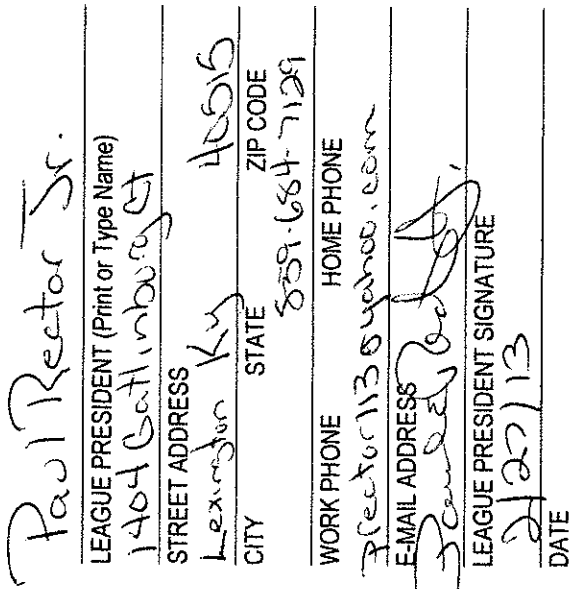 Paul Rector Jr.
LEAGUE PRESIDENT (Print or Type Name)
1404 Gatlinburg Ct
STREET ADDRESS
Lexington Ky 40515
CITY STATE ZIP CODE
859-684-7129
WORK PHONE HOME PHONE
prector113@yahoo.com
E-MAIL ADDRESS
LEAGUE PRESIDENT SIGNATURE
2/27/13
DATE